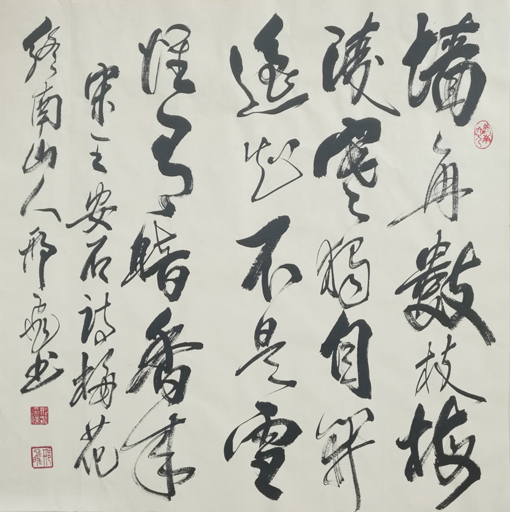 墙角数枝梅
陵寒独自开
遥知不是雪
惟有暗香来
宋王安石诗梅花
终南山人邢飞书